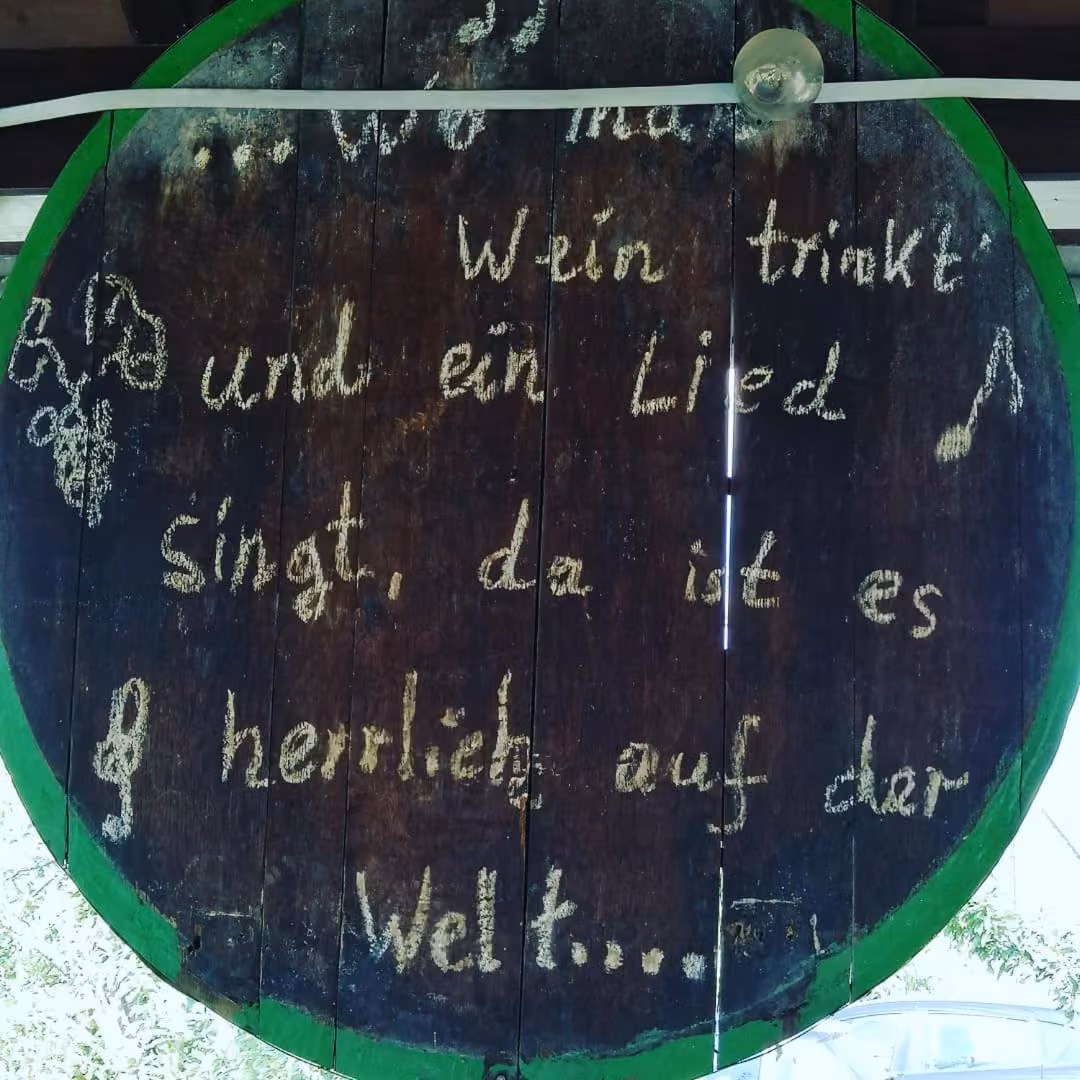 ...Wo man
Wein trinkt
und ein Lied
singt, da ist es
herrlich auf der
Welt....